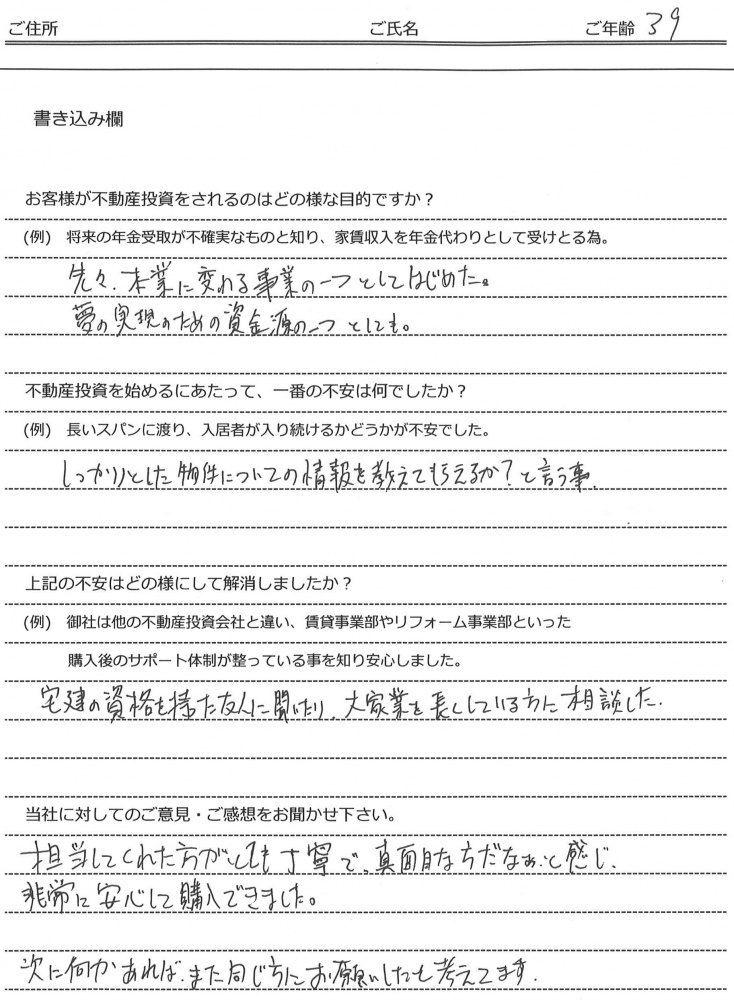 ご住所 ご氏名 ご年齢 39
書き込み欄
お客様が不動産投資をされるのはどの様な目的ですか？
(例) 将来の年金受取が不確実なものと知り、家賃収入を年金代わりとして受けとる為。
先々、本業に変わる事業の一つとしてはじめた。
夢の実現のための資金源の一つとしても。
不動産投資を始めるにあたって、一番の不安は何でしたか？
(例) 長いスパンに渡り、入居者が入り続けるかどうかが不安でした。
しっかりとした物件についての情報を教えてもらえるか？と言う事.
上記の不安はどの様にして解消しましたか？
(例) 御社は他の不動産投資会社と違い、賃貸事業部やリフォーム事業部といった
購入後のサポート体制が整っている事を知り安心しました。
宅建の資格を持た友人に聞いたり、大家業を長くしている方に相談した.
当社に対してのご意見・ご感想をお聞かせ下さい。
担当してくれた方がとても丁寧で、真面目な方だなぁと感じ、
非常に安心して購入できました。
次に何かあれば、また同じ方にお願いしたも考えてます.